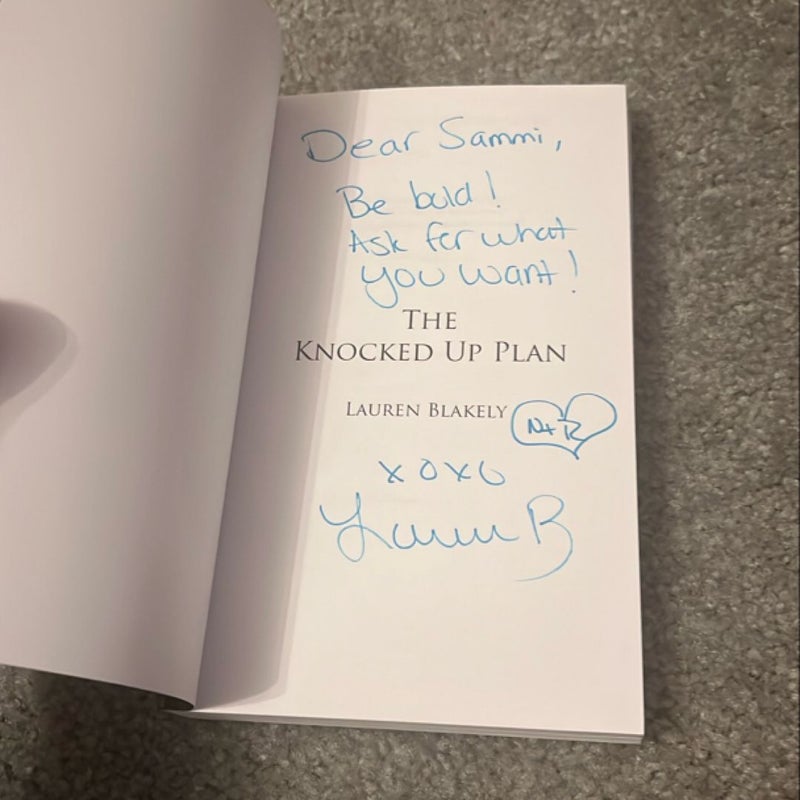 Dear Sammi,
Be bold!
Ask for what
you want!
THE
KNOCKED UP PLAN
LAUREN BLAKELY
N+R
XOXO
Lauren B